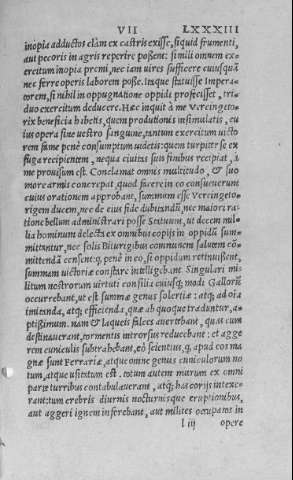 VII LXXXIII
inopia adductos clàm ex castris exisse, siquid frumenti,
aut pecoris in agris reperire possent: simili omnem ex=
ercitum inopia premi, nec iam uires sufficere cuiusquã
nec ferre operis laborem posse. itaque statuisse Impera=
torem, si nihil in oppugnatione oppidi profecisset, tri=
duo exercitum deducere. Hæc inquit à me Vercingeto=
rix beneficia habetis, quem proditionis insimulatis, cu
ius opera sine uestro sanguine, tantum exercitum uicto
rem fame penè consumptum uidetis: quem turpiter se ex
fuga recipientem, nequa ciuitas suis finibus recipiat, à
me prouisum est. Conclamat omnis multitudo, & suo
more armis concrepat, quod facere in eo consueuerunt
cuius orationem approbant, summum esse Vercingeto=
rigem ducem, nec de eius fide dubitandũ, nec maiore ra=
tione bellum administrari posse. Statuunt, ut decem mil=
lia hominum delecta ex omnibus copijs in oppidũ sum=
mittantur, nec solis Biturigibus communem salutem cõ=
mittendã censent: q̃ penè in eo, si oppidum retinuissent,
summam uictoriæ constare intelligebant. Singulari mi
litum nostrorum uirtuti consilia cuiusq; modi Gallorũ
occurrebant, ut est summæ genus solertiæ: atq; ad oĩa
imitanda, atq; efficienda, quæ ab quoque tradantur, a=
ptissimum. nam & laqueis falces auertebant, quas cum
destinauerant, tormentis introrsus reducebant: et agge
rem cuniculis subtrahebant, eò scientius, q̃ apud eos ma
gnæ sunt Ferrariæ, atque omne genus cuniculorum no
tum, atque usitatum est. totum autem murum ex omni
parte turribus contabulauerant, atq; has corijs intexe=
rant: tum crebris diurnis nocturnisque eruptionibus,
aut aggeri ignem inferebant, aut milites occupatos in
l iij opere